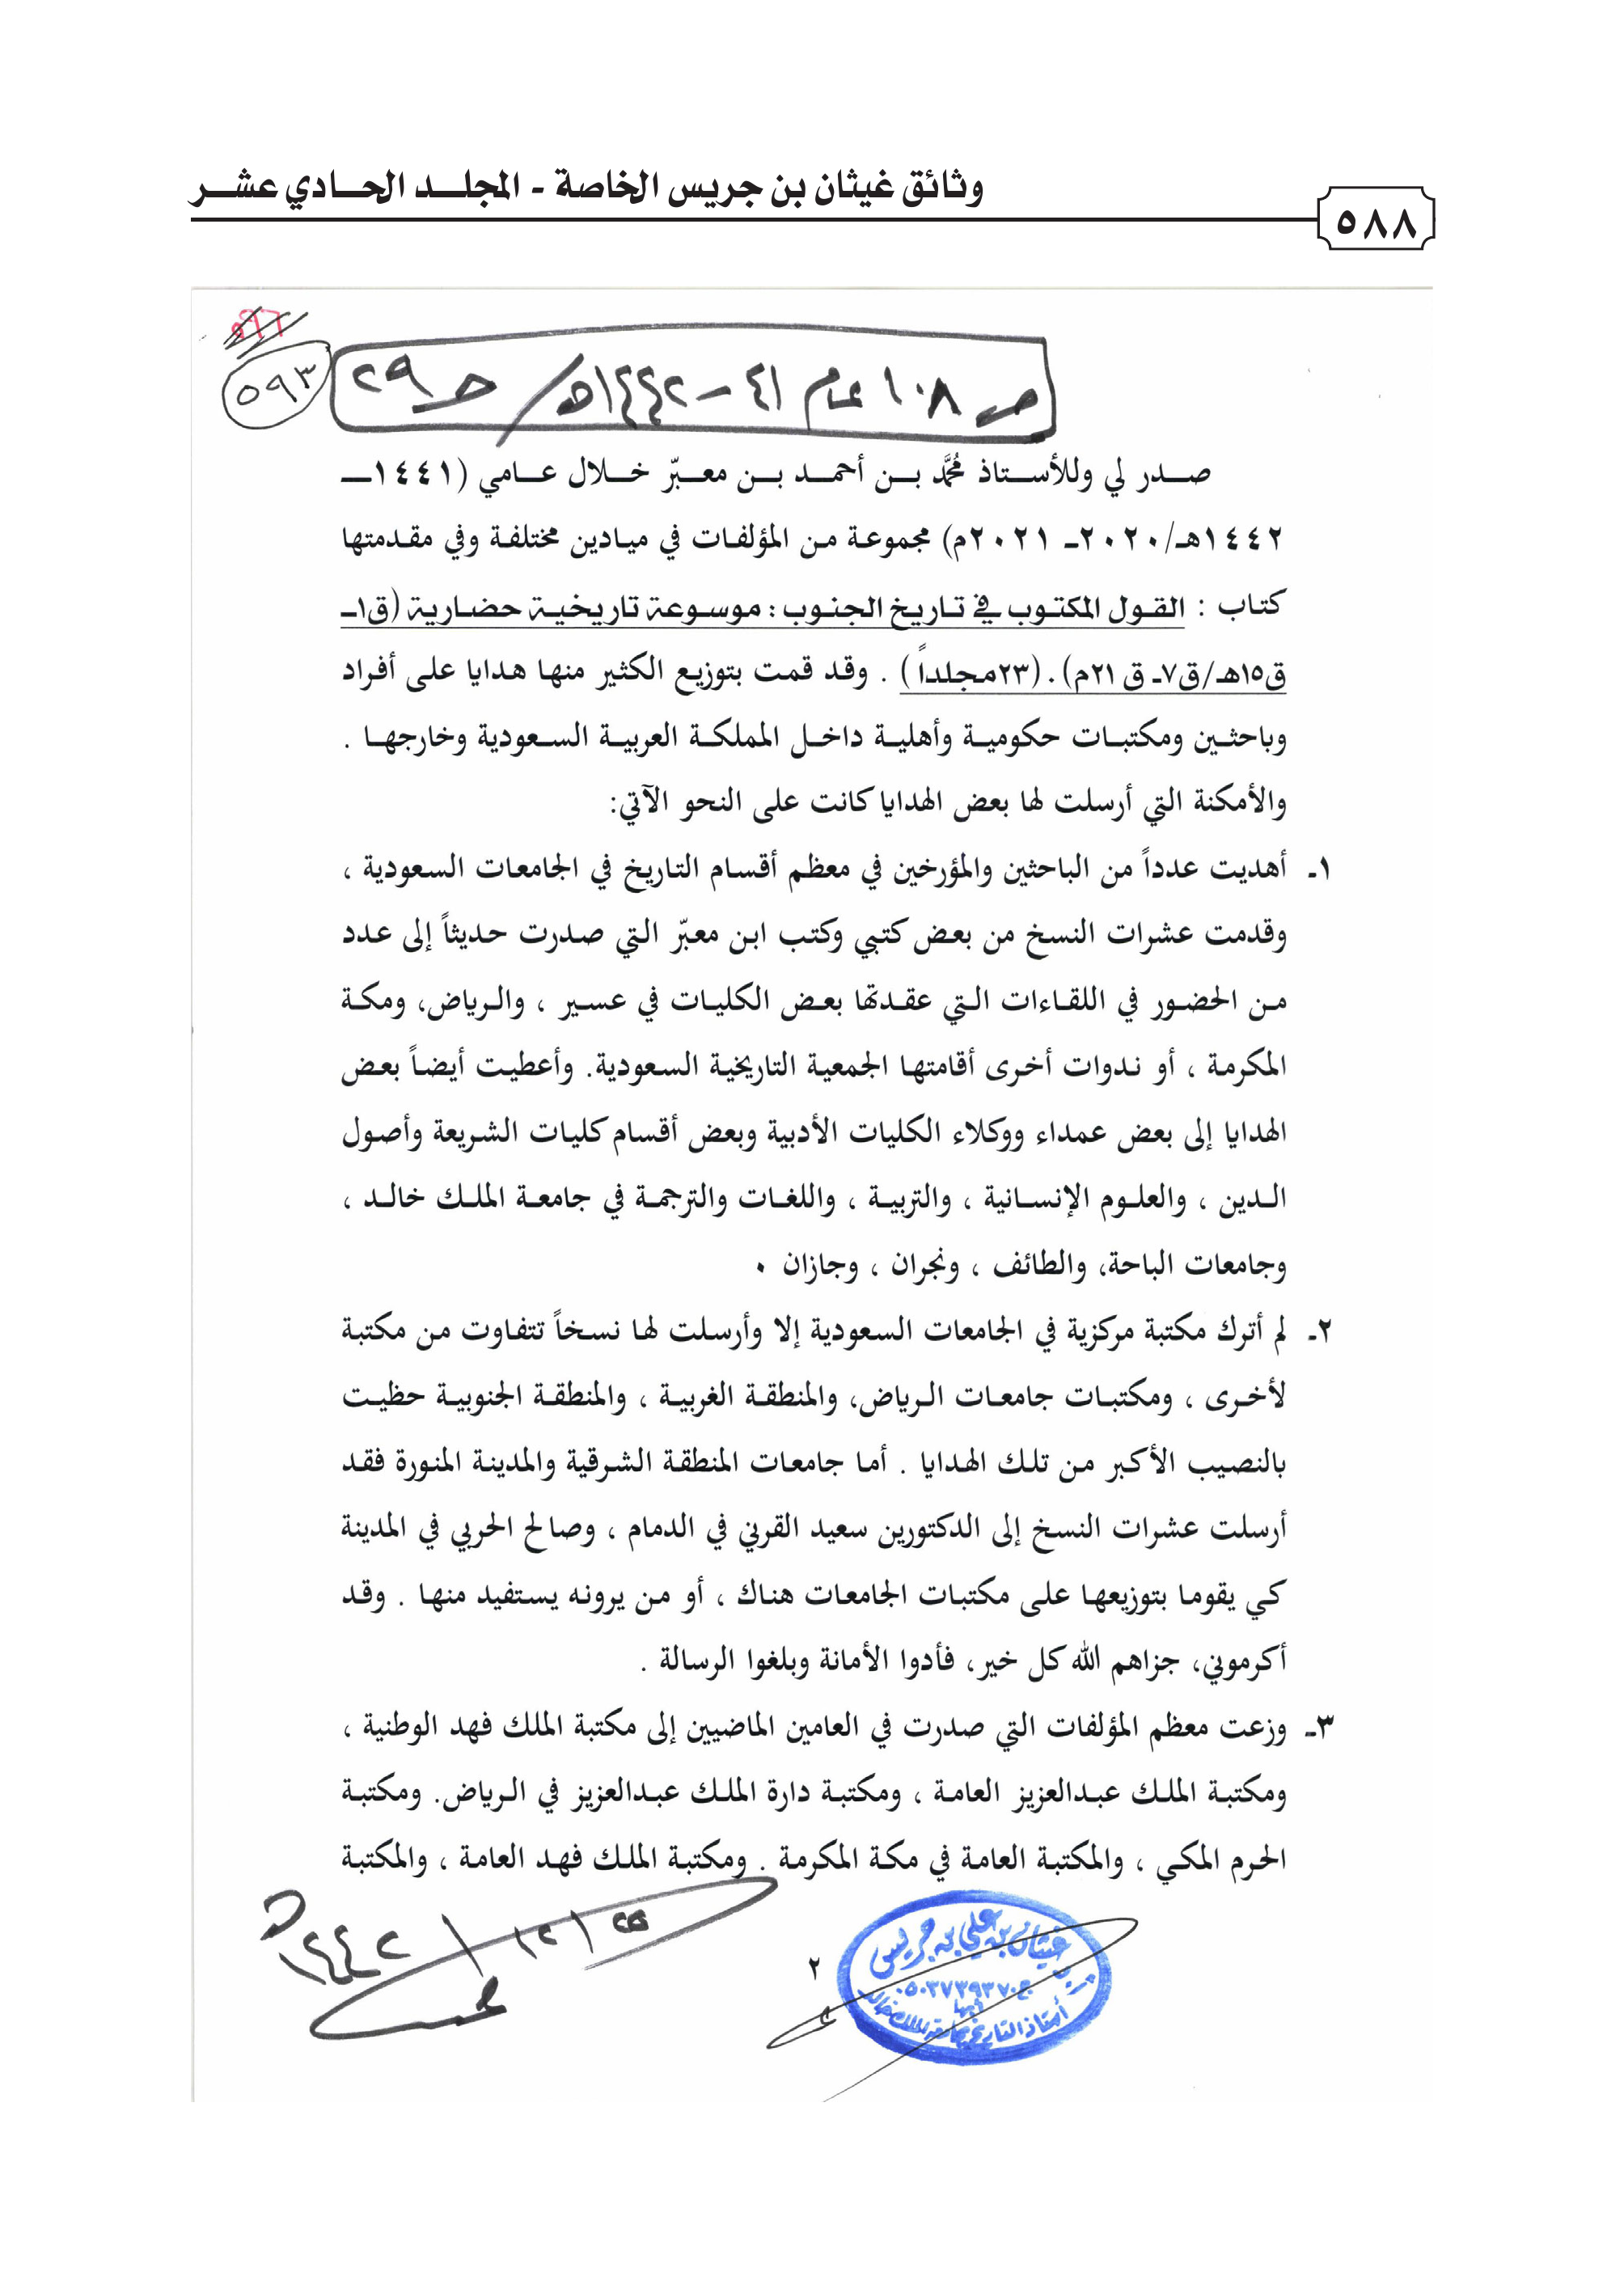 وثائق غيثان بن جريس الخاصة - المجلد الحادي عشر
٥٨٨
٥٩٣
ص ١٠٨ عام ٤١ – ١٤٤٢هـ / حـ ٢٩
صدر لي وللأستاذ محمَّد بن أحمد بن معبّر خلال عامي (١٤٤١ـ
١٤٤٢هـ/٢٠٢٠ـ ٢٠٢١م) مجموعة من المؤلفات في ميادين مختلفة وفي مقدمتها
كتاب : القول المكتوب في تاريخ الجنوب : موسوعة تاريخية حضارية (ق١ـ
ق١٥هـ/ق٧ـ ق ٢١م) . (٢٣مجلداً ) . وقد قمت بتوزيع الكثير منها هدايا على أفراد
وباحثين ومكتبات حكومية وأهلية داخل المملكة العربية السعودية وخارجها .
والأمكنة التي أرسلت لها بعض الهدايا كانت على النحو الآتي:
١ـ أهديت عدداً من الباحثين والمؤرخين في معظم أقسام التاريخ في الجامعات السعودية ،
وقدمت عشرات النسخ من بعض كتبي وكتب ابن معبّر التي صدرت حديثاً إلى عدد
من الحضور في اللقاءات التي عقدتها بعض الكليات في عسير ، والرياض، ومكة
المكرمة ، أو ندوات أخرى أقامتها الجمعية التاريخية السعودية. وأعطيت أيضاً بعض
الهدايا إلى بعض عمداء ووكلاء الكليات الأدبية وبعض أقسام كليات الشريعة وأصول
الدين ، والعلوم الإنسانية ، والتربية ، واللغات والترجمة في جامعة الملك خالد ،
وجامعات الباحة، والطائف ، ونجران ، وجازان ٠
٢ـ لم أترك مكتبة مركزية في الجامعات السعودية إلا وأرسلت لها نسخاً تتفاوت من مكتبة
لأخرى ، ومكتبات جامعات الرياض، والمنطقة الغربية ، والمنطقة الجنوبية حظيت
بالنصيب الأكبر من تلك الهدايا . أما جامعات المنطقة الشرقية والمدينة المنورة فقد
أرسلت عشرات النسخ إلى الدكتورين سعيد القرني في الدمام ، وصالح الحربي في المدينة
كي يقوما بتوزيعها على مكتبات الجامعات هناك ، أو من يرونه يستفيد منها . وقد
أكرموني، جزاهم الله كل خير، فأدوا الأمانة وبلغوا الرسالة .
٣ـ وزعت معظم المؤلفات التي صدرت في العامين الماضيين إلى مكتبة الملك فهد الوطنية ،
ومكتبة الملك عبدالعزيز العامة ، ومكتبة دارة الملك عبدالعزيز في الرياض. ومكتبة
الحرم المكي ، والمكتبة العامة في مكة المكرمة . ومكتبة الملك فهد العامة ، والمكتبة
غيثان بن علي بن جريس
ج ٠٥٠٣٧٣٩٣٧٠
أبها
أستاذ التاريخ بجامعة الملك خالد
٢
١٢ / ١٤٤٢هـ